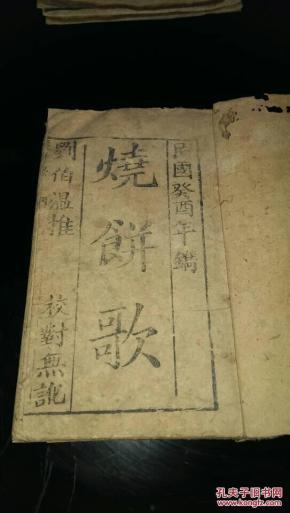 民國癸酉年鐫
燒餅歌
劉伯温推 校對無訛
孔夫子旧书网